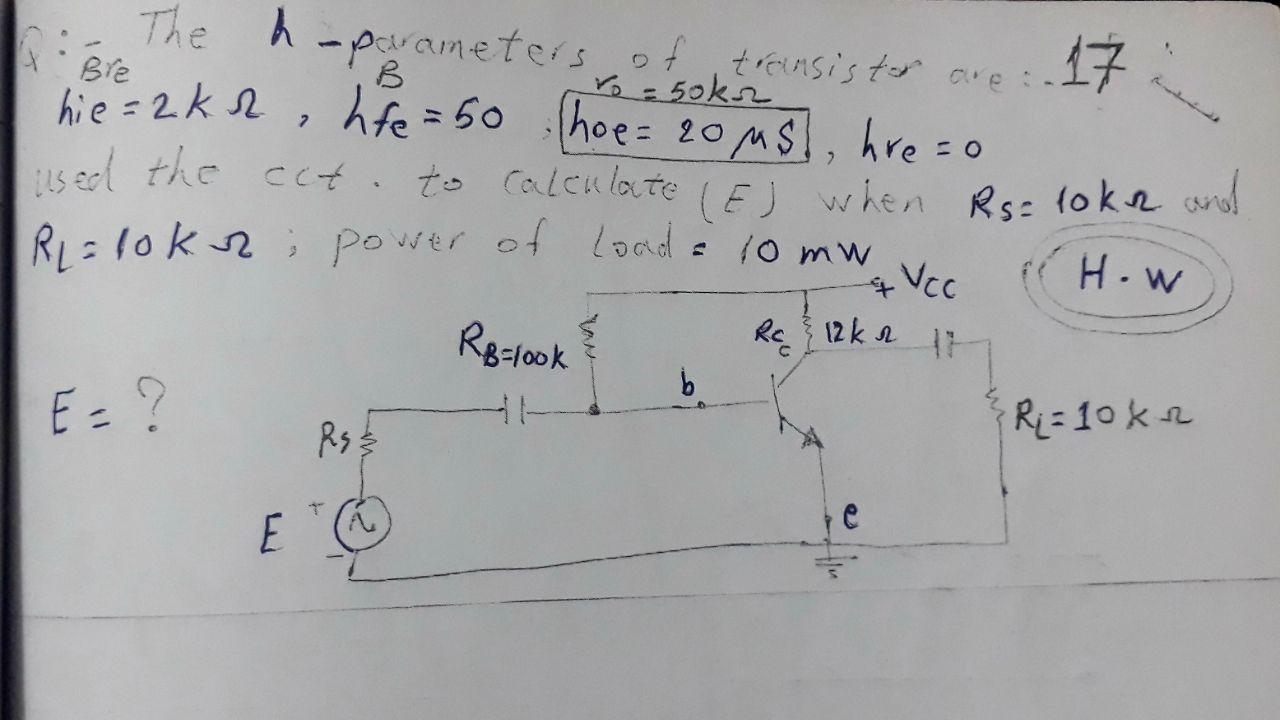 Q:- The h-parameters of transistor are:- 17
Bre B r₀ = 50kΩ
hie = 2kΩ, hfe = 50, hoe = 20 μS, hre = 0
used the cct. to calculate (E) when Rs = 10kΩ and
RL = 10kΩ; power of Load = 10 mW
H.W
+ Vcc
RB=100k
Rc 12kΩ
c
b
E = ?
Rs
RL = 10kΩ
E + -
e